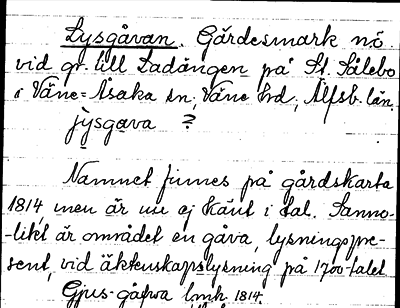 Lysgåvan. Gärdesmark nö
vid gr. till Ladängen på St. Sålebo
i Väne-Åsaka sn, Väne hd, Älfsb. län.
jysgava ?
Namnet finnes på gårdskarta
1814, men är nu ej känt i tal. Sanno-
-likt är området en gåva, lysningspre-
sent, vid äktenskapslysning på 1700-talet
Gjus-gåfwa lmk 1814.